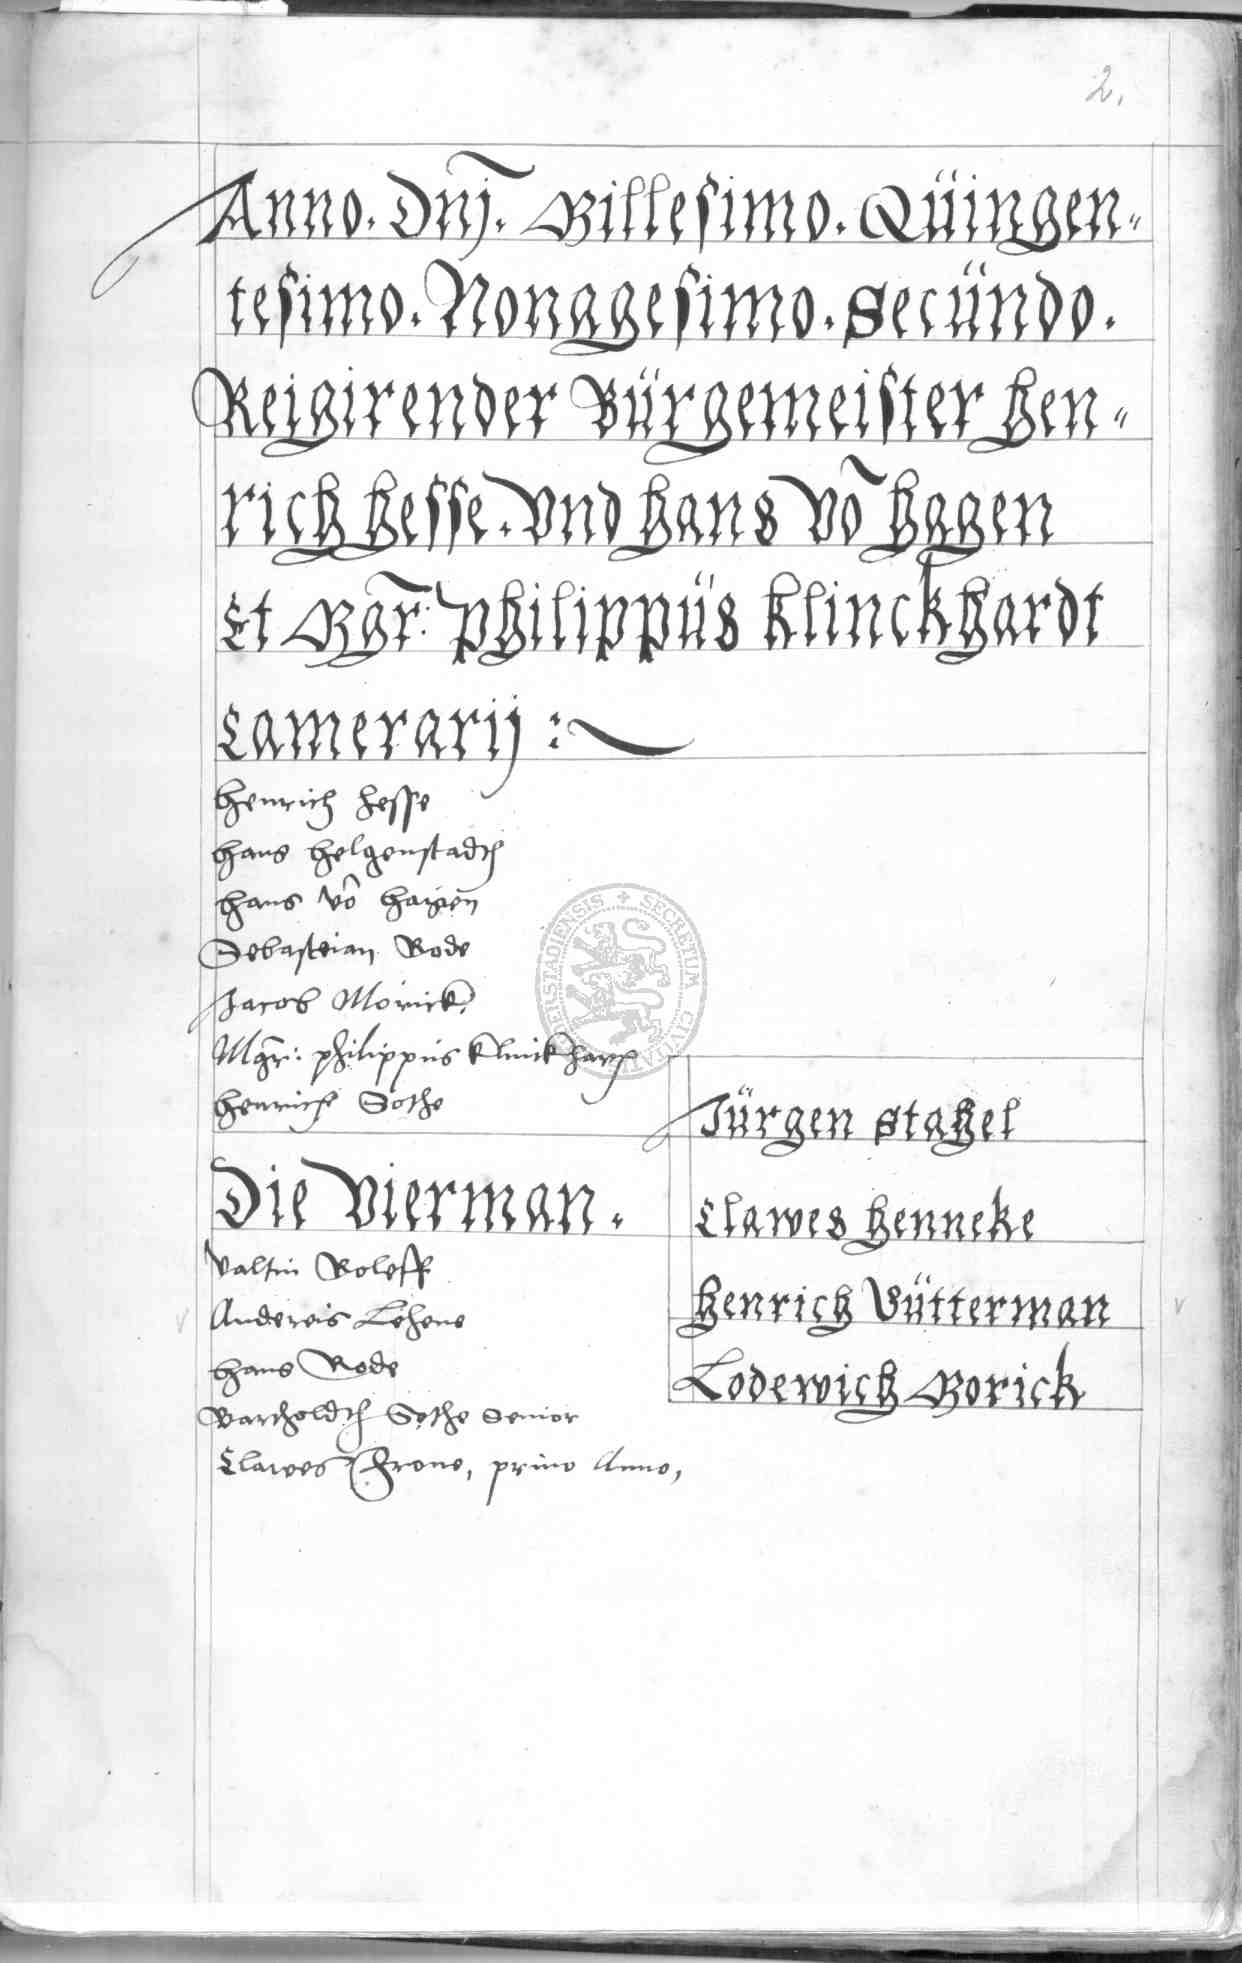 2.
Anno. Dnj̃. Millesimo. Quingen„
tesimo. Nonagesimo. Secundo.
Reigirender Bürgemeister Hen„
rich Hesse. Vnd Hans Võ Hagen
Et Mgr̃: Philippüs Klinckhardt
Camerarij :
Henrich Hesse
Hans Helgenstadth
Hans võ Hagen
Sebasteian Rode
Jacob Morick
Mgr̃: philippus Klinkhart
Henrich Sothe
Die Vierman.
Valtin Roleff
Andereis Lehene
Hans Rode
Bartholdth Sothe Senior
Clawes Grone, primo Anno,
Jürgen Stahel
Clawes Henneke
Henrich Vütterman
Lodewich Morick
SECRETUM CIVITATIS DERSTADIENSIS